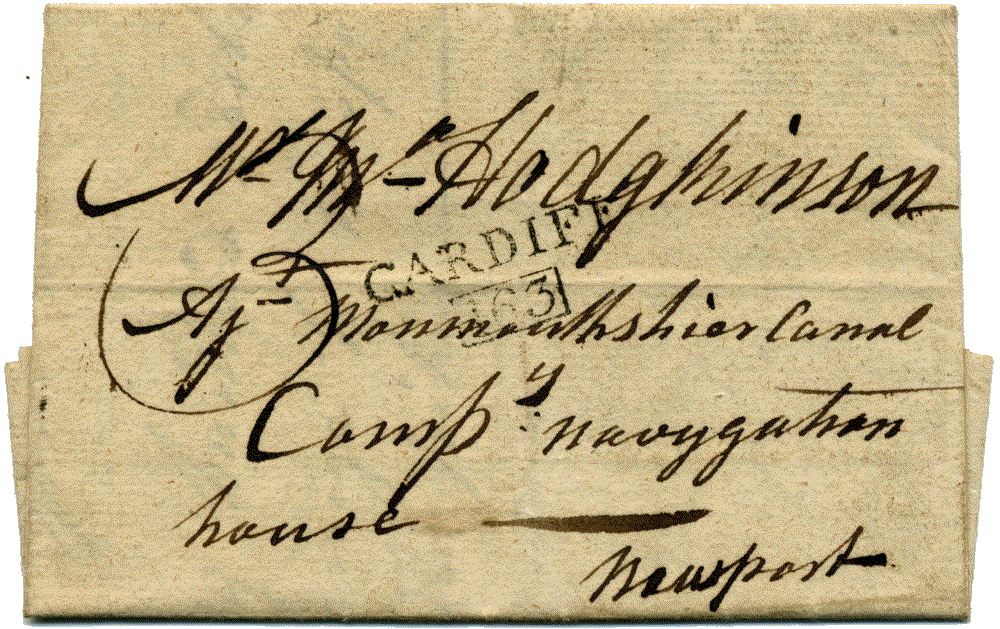 Mr. Wm. Hodgkinson
CARDIFF
163
Agt Monmouthshier Canal
Compy navygation
house
Newport